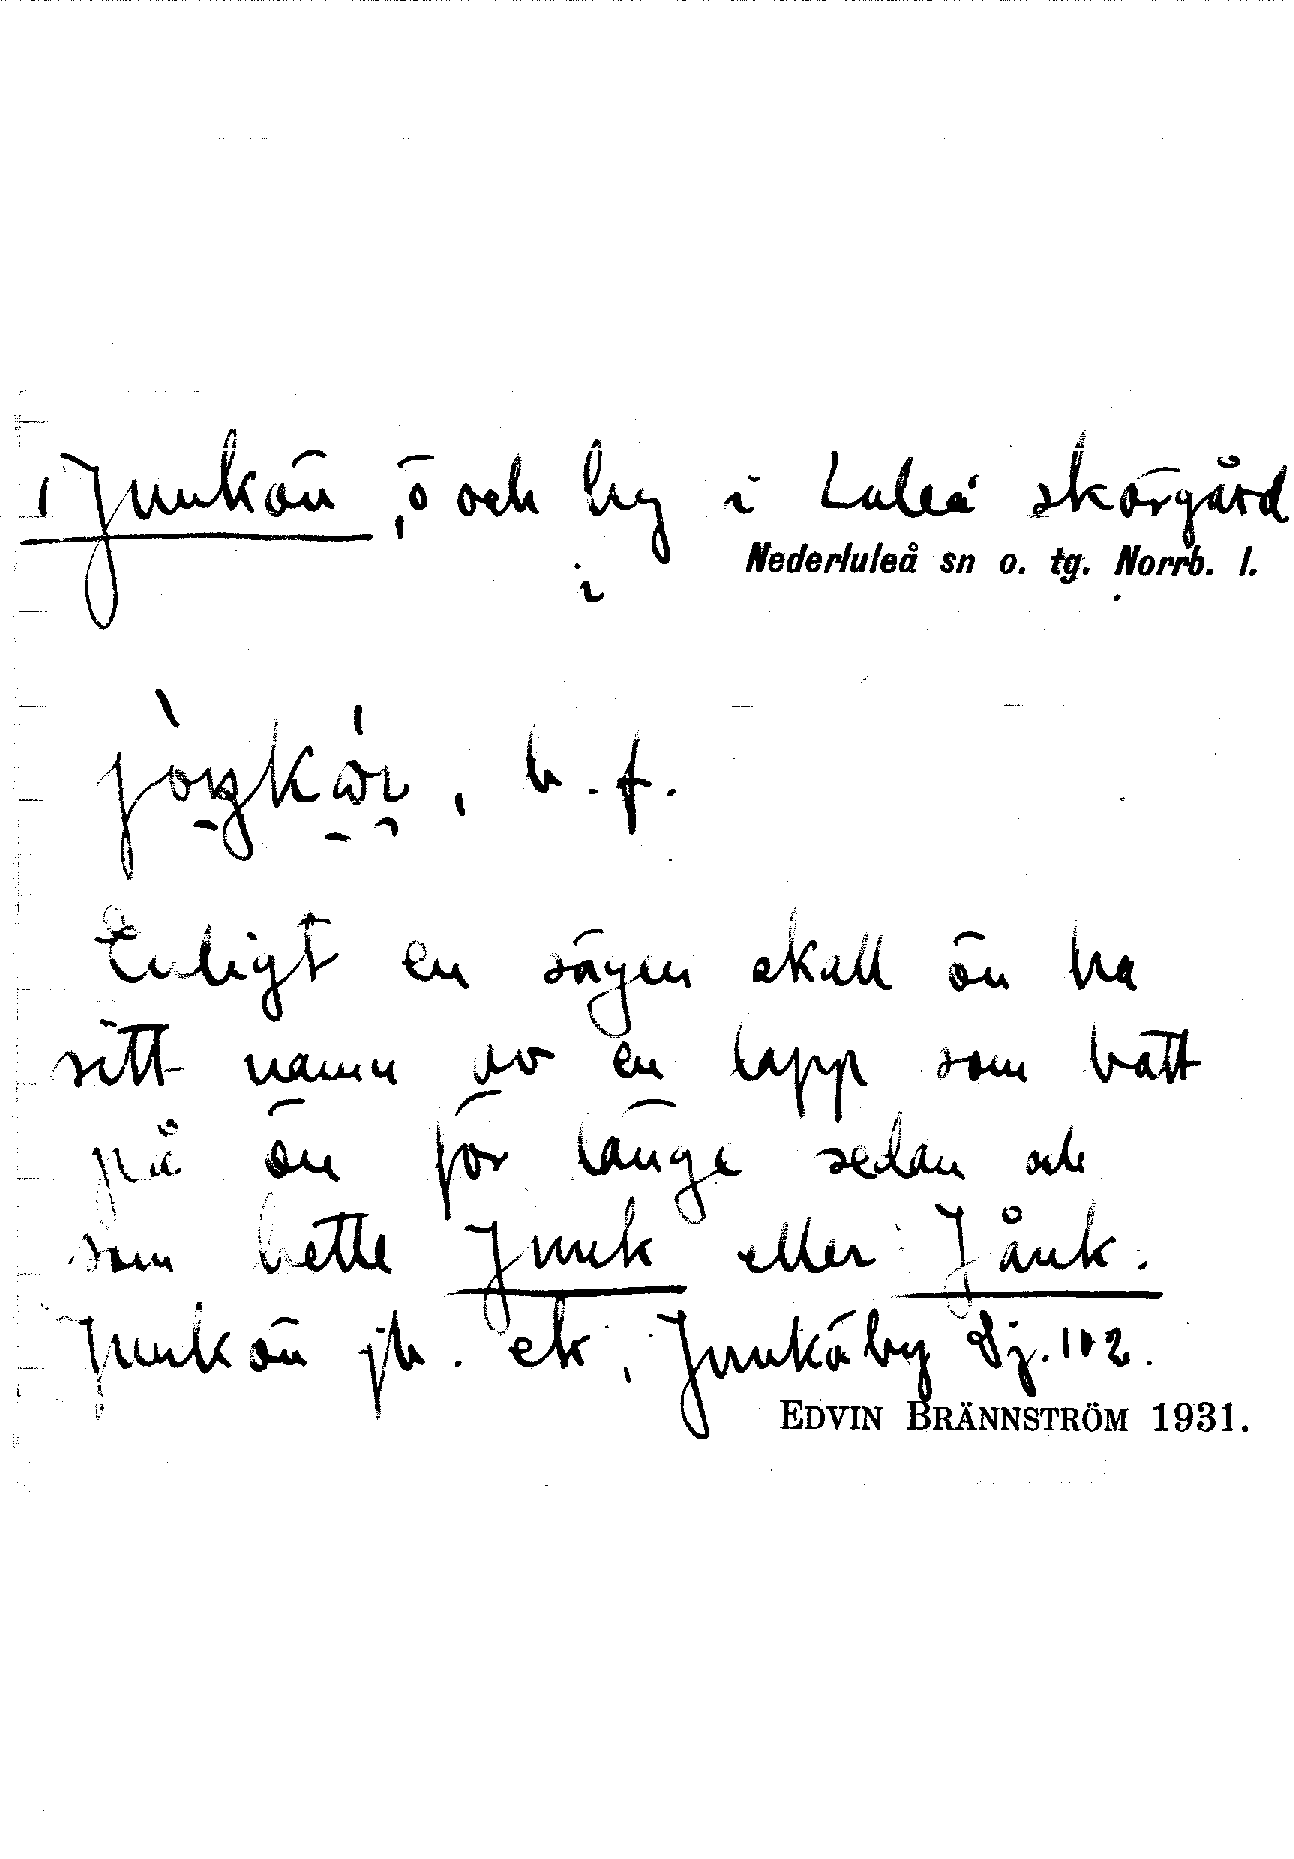 Junkön, ö och by i Luleå skärgård
Nederluleå sn o. tg. Norrb. l.
i
b. f.
Enligt en sägen skall ön ha
sitt namn av en lapp som bott
på ön för länge sedan och
som hette Junk eller Jånk.
Junkön jb. ek, Junköby Sj. 102.
EDVIN BRÄNNSTRÖM 1931.